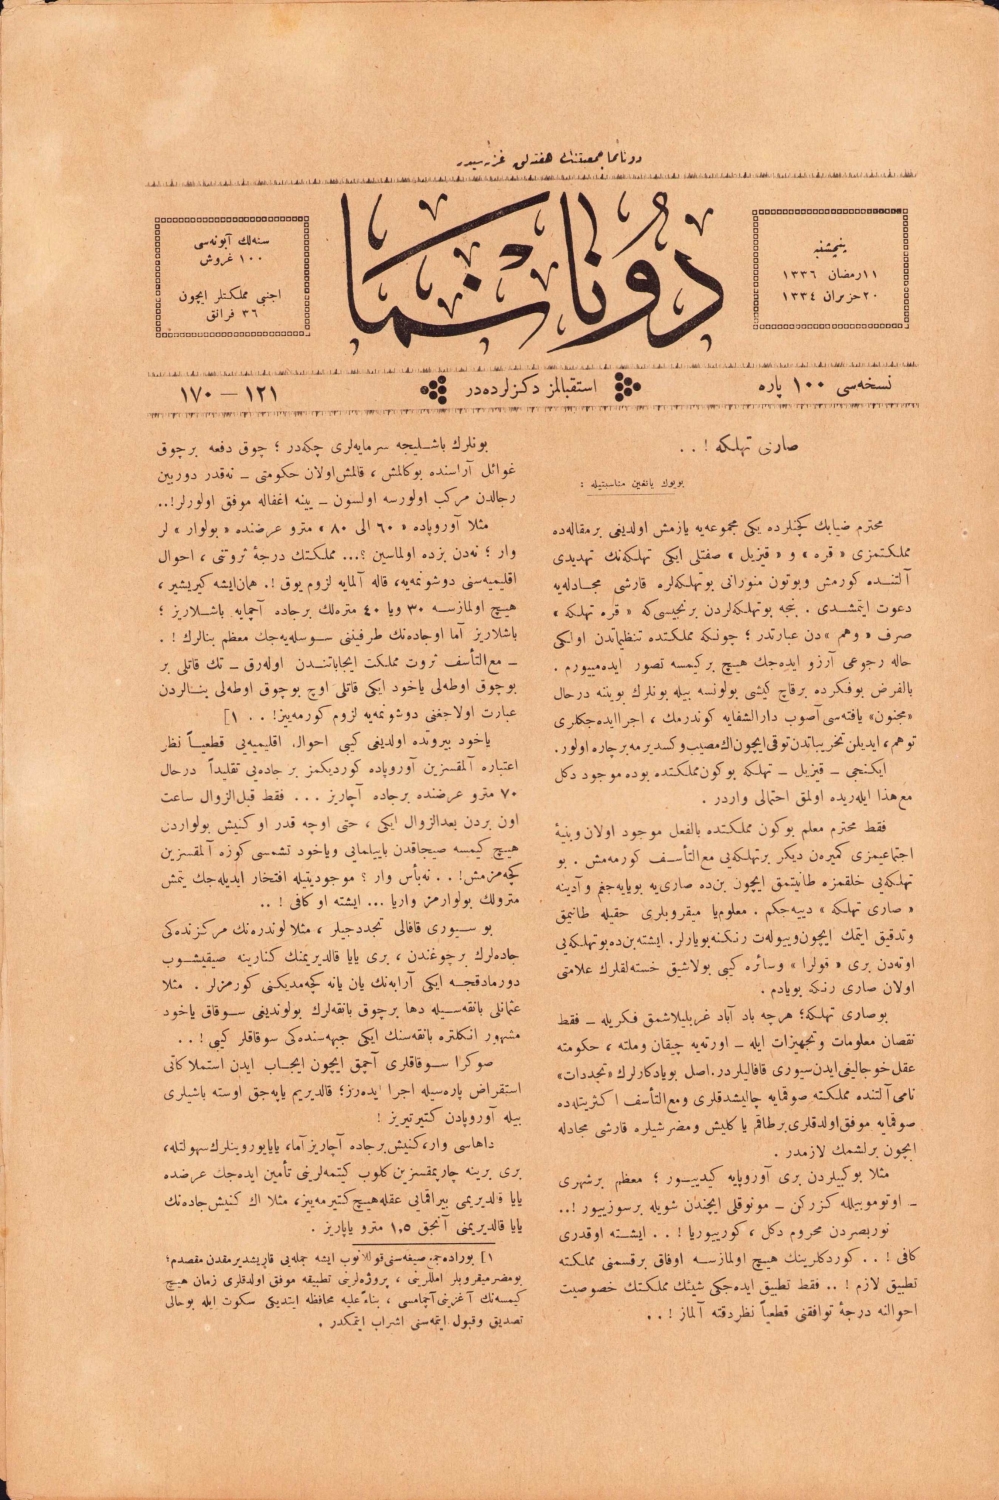 دونانما جمعیتنك هفته‌لق غزته‌سیدر
پنجشنبه
١١ رمضان ١٣٣٦
٢٠ حزیران ١٣٣٤
دونانما
سنه‌لك آبونه‌سی
١٠٠ غروش
اجنبی مملكتلر ایچون
٣٦ فرانق
نسخه‌سی ١٠٠ پاره
استقبالمز دكزلرده‌در
١٢١ — ١٧٠
صاری تهلكه ! . .
بویوك یانغین مناسبتیله :
محترم ضیابك كچنلرده یكی مجموعه‌یه یازمش اولدیغی بر مقاله‌ده
مملكتمزی « قره » و « قیزیل » صفتلی ایكی تهلكه‌نك تهدیدی
آلتنده كورمش وبوتون منورانی بوتهلكه‌لره قارشی مجادله‌یه
دعوت ایتمشدی . بنجه بوتهلكه‌لردن برنجیسی‌كه « قره تهلكه »
صرف « وهم »دن عبارتدر ؛ چونكه مملكتده تنظیماتدن اولكی
حاله رجوعی آرزو ایده‌جك هیچ بر كیمسه تصور ایده‌میورم .
بالفرض بوفكرده برقاچ كیشی بولونسه بیله بونلرك بویننه درحال
«مجنون» یافته‌سی آصوب دارالشفایه كوندرمك ، اجرا ایده‌جكلری
توهم ، ایدیلن تخریباتدن توقی ایچون اك مصیب وكسدیرمه برچاره اولور.
ایكنجی — قیزیل — تهلكه بوكون مملكتده بوده موجود دكل
مع هذا ایله‌ریده اولمق احتمالی واردر .
فقط محترم معلم بوكون مملكتده بالفعل موجود اولان وبنیهٔ
اجتماعیمزی كمیرەن دیكر بر تهلكه‌یی مع التأسف كورمه‌مش . بو
تهلكه‌یی خلقمزه طانیتمق ایچون بن‌ده صاری‌یه بویایه‌جغم وآدینه
« صاری تهلكه » دییه‌جكم . معلوم‌یا میقروبلری حقیله طانیمق
وتدقیق ایتمك ایچون وبیوله‌ت رنكنه بویارلر. ایشته بن‌ده بوتهلكه‌یی
اوته‌دن بری « قولرا » وسائره كیبی بولاشیق خسته‌لقلرك علامتی
اولان صاری رنكه بویادم .
بوصاری تهلكه؛ هرچه باد آباد غربلیلاشمق فكریله — فقط
نقصان معلومات وتجهیزات ایله — اورته‌یه چیقان وملته ، حكومته
عقل خوجالیغی ایدن سیوری قافالیلردر. اصل بویادكارلرك «تجددات»
نامی آلتنده مملكته صوقمایه چالیشدقلری ومع التأسف اكثریتله‌ده
صوقمایه موفق اولدقلری برطاقم یاكلیش ومضر شیلره قارشی مجادله
ایچون برلشمك لازمدر .
مثلا بوكبیلردن بری آوروپایه كیدییور ؛ معظم برشهری
— اوتوموبیلله كزركن — مونوقلی ایچندن شویله بر سوزییور !..
نوربصردن محروم دكل ، كورییوریا ! . . ایشته اوقدری
كافی ! . . كوردكلرینك هیچ اولمازسه اوفاق برقسمنی مملكته
تطبیق لازم ! .. فقط تطبیق ایده‌جكی شیئك مملكتك خصوصیت
احوالنه درجهٔ توافقنی قطعیاً نظردقته آلماز ! . .
بونلرك باشلیجه سرمایه‌لری چكه‌در ؛ چوق دفعه برچوق
غوائل آراسنده بوكالمش ، قالمش اولان حكومتی — نه‌قدر دوربین
رجالدن مركب اولورسه اولسون — یینه اغفاله موفق اولورلر!..
مثلا آوروپاده « ٦٠ الی ٨٠ » مترو عرضنده « بولوار » لر
وار ؛ نه‌دن بزده اولماسین ؟... مملكتك درجهٔ ثروتنی ، احوال
اقلیمیه‌سنی دوشونمه‌یه، قاله آلمایه لزوم یوق !. همان‌ایشه كیریشیر ،
هیچ اولمازسه ٣٠ ویا ٤٠ متره‌لك برجاده آچمایه باشلاریز ؛
باشلاریز آما اوجاده‌نك طرفیننی سوسله‌یه‌جك معظم بنالرك ! .
— مع التأسف ثروت مملكت ایجاباتندن اوله‌رق — تك قاتلی بر
بوچوق اوطه‌لی یاخود ایكی قاتلی اوچ بوچوق اوطه‌لی بنالردن
عبارت اولاجغنی دوشونمه‌یه لزوم كورمه‌ییز! . . ١]
یاخود بیروتده اولدیغی كیبی احوال اقلیمیه‌یی قطعیاً نظر
اعتباره آلمقسزین آوروپاده كوردیكمز بر جاده‌یی تقلیداً درحال
٧٠ مترو عرضنده برجاده آچاریز ... فقط قبل الزوال ساعت
اون بردن بعدالزوال ایكی ، حتی اوچه قدر او كنیش بولواردن
هیچ كیمسه صیجاقدن باییلمایی ویاخود تشمسی كوزه آلمقسزین
كچه‌مزمش! . . نه‌بأس وار ؟ موجودیتیله افتخار ایدیله‌جك یتمش
مترولك بولوارمز واریا ... ایشته او كافی ! ..
بو سیوری قافالی تجددجیلر ، مثلا لوندره‌نك مركزنده‌كی
جاده‌لرك برچوغندن ، بری یایا قالدیریمنك كنارینه صیقیشوب
دورمادقجه ایكی آرابه‌نك یان یانه كچه‌مدیكنی كورمزلر . مثلا
عثمانلی بانقه‌سیله دها برچوق بانقه‌لرك بولوندیغی سوقاق یاخود
مشهور انكلتره بانقه‌سنك ایكی جبهه‌سنده‌كی سوقاقلر كیبی ! . .
صوكرا سوقاقلری آچمق ایچون ایجاب ایدن استملاكاتی
استقراض پاره‌سیله اجرا ایده‌رز؛ قالدیریم یاپه‌جق اوسته باشیلری
بیله آوروپادن كتیرتیریز !
داهاسی وار ، كنیش برجاده آچاریز آما، یایا یوروینلرك سهولتله،
بری برینه چارپمقسزین كلوب كیتمه‌لرینی تأمین ایده‌جك عرضده
یایا قالدیریمی بیراقمایی عقله هیچ كتیرمه‌ییز، مثلا اك كنیش جاده‌نك
یایا قالدیریمنی آنجق ١,٥ مترو یاپاریز .
١] بوراده جمع صیغه‌سنی قوللانوب ایشه جمله‌یی قاریشدیرمقدن مقصدم؛
بومضر میقروبلر املارینی ، پروژه‌لرینی تطبیقه موفق اولدقلری زمان هیچ
كیمسه‌نك آغزینی آچمامسی ، بناءً علیه محافظه ایتدیكی سكوت ایله بوحالی
تصدیق وقبول ایتمه‌سنی اشراب ایتمكدر .